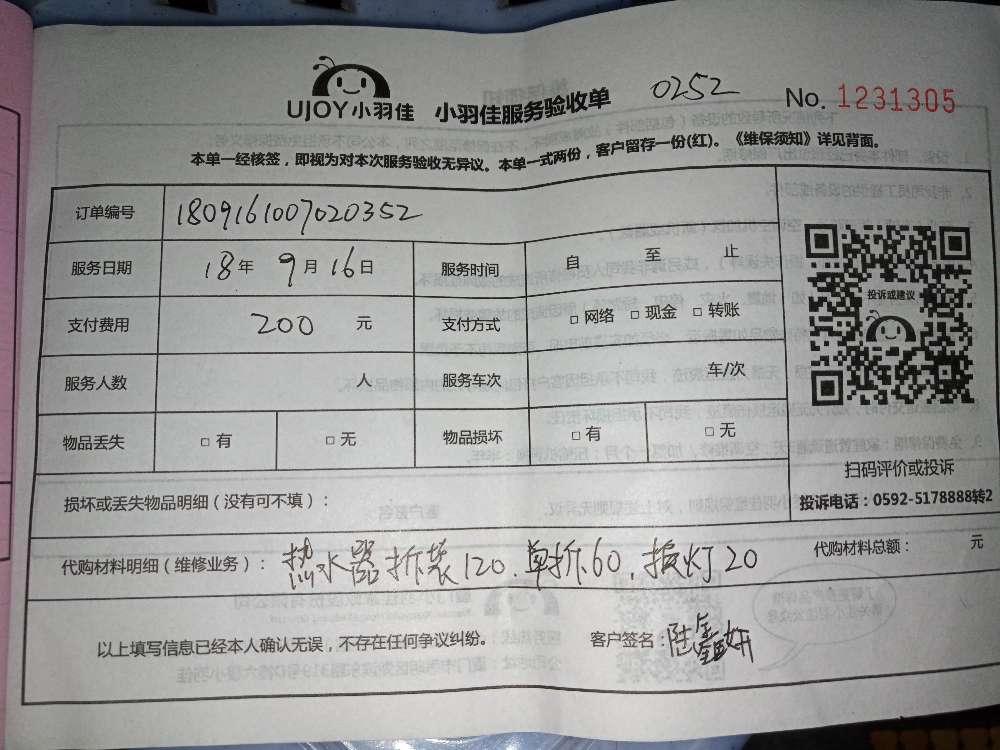 UJOY小羽佳 小羽佳服务验收单 0252 No. 1231305
本单一经核签，即视为对本次服务验收无异议。本单一式两份，客户留存一份(红)。《维保须知》详见背面。
订单编号 180916100702035​2
服务日期 18年 9月 16日 服务时间 自 至 止
支付费用 200 元 支付方式 □ 网络 □ 现金 □ 转账
投诉或建议
服务人数 人 服务车次 车/次
物品丢失 □ 有 □ 无 物品损坏 □ 有 □ 无
扫码评价或投诉
损坏或丢失物品明细（没有可不填）：
投诉电话：0592-5178888转2
代购材料明细（维修业务）： 热水器拆装120.单拆60.换灯20 代购材料总额： 元
以上填写信息已经本人确认无误，不存在任何争议纠纷。 客户签名：陆鑫妍